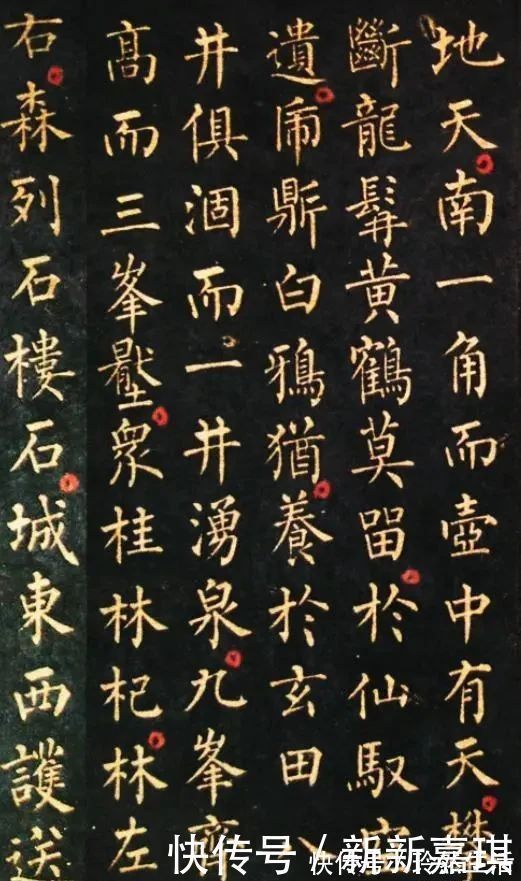 地天南一角而壺中有天
斷龍髥黃鶴莫畱於仙馭
遺乕鼎白鴉猶養於玄田八
井俱涸而一井湧泉九峯
高而三峯壓衆桂林杞林左
右森列石樓石城東西護送
快传号/新新嘉琪